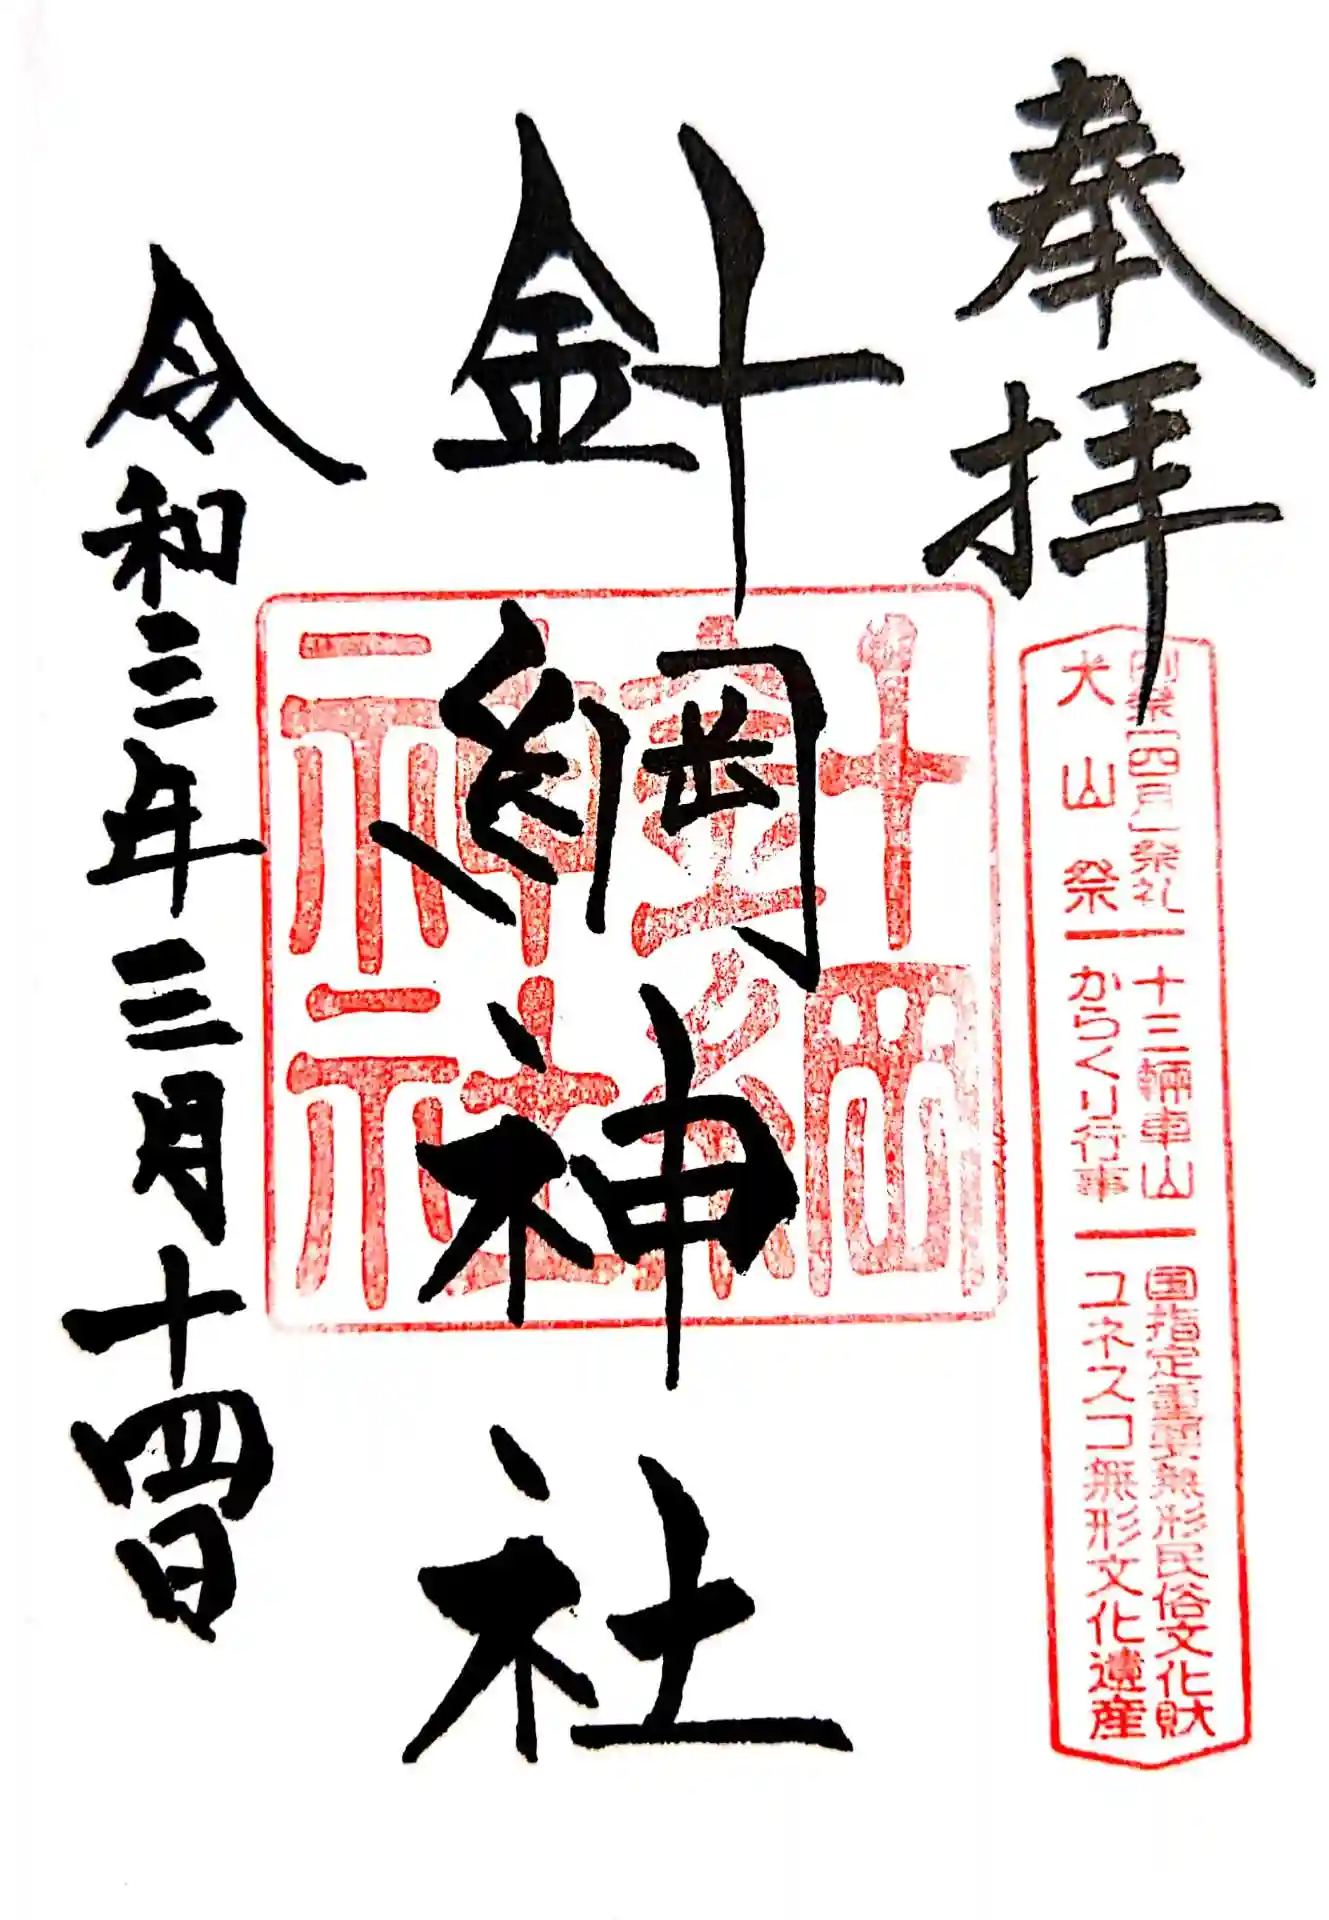 奉拝
例祭「四月」祭礼 十三輛車山 国指定重要無形民俗文化財
犬山祭 からくり行事 ユネスコ無形文化遺産
針綱神社
針綱
神社
令和三年三月十四日